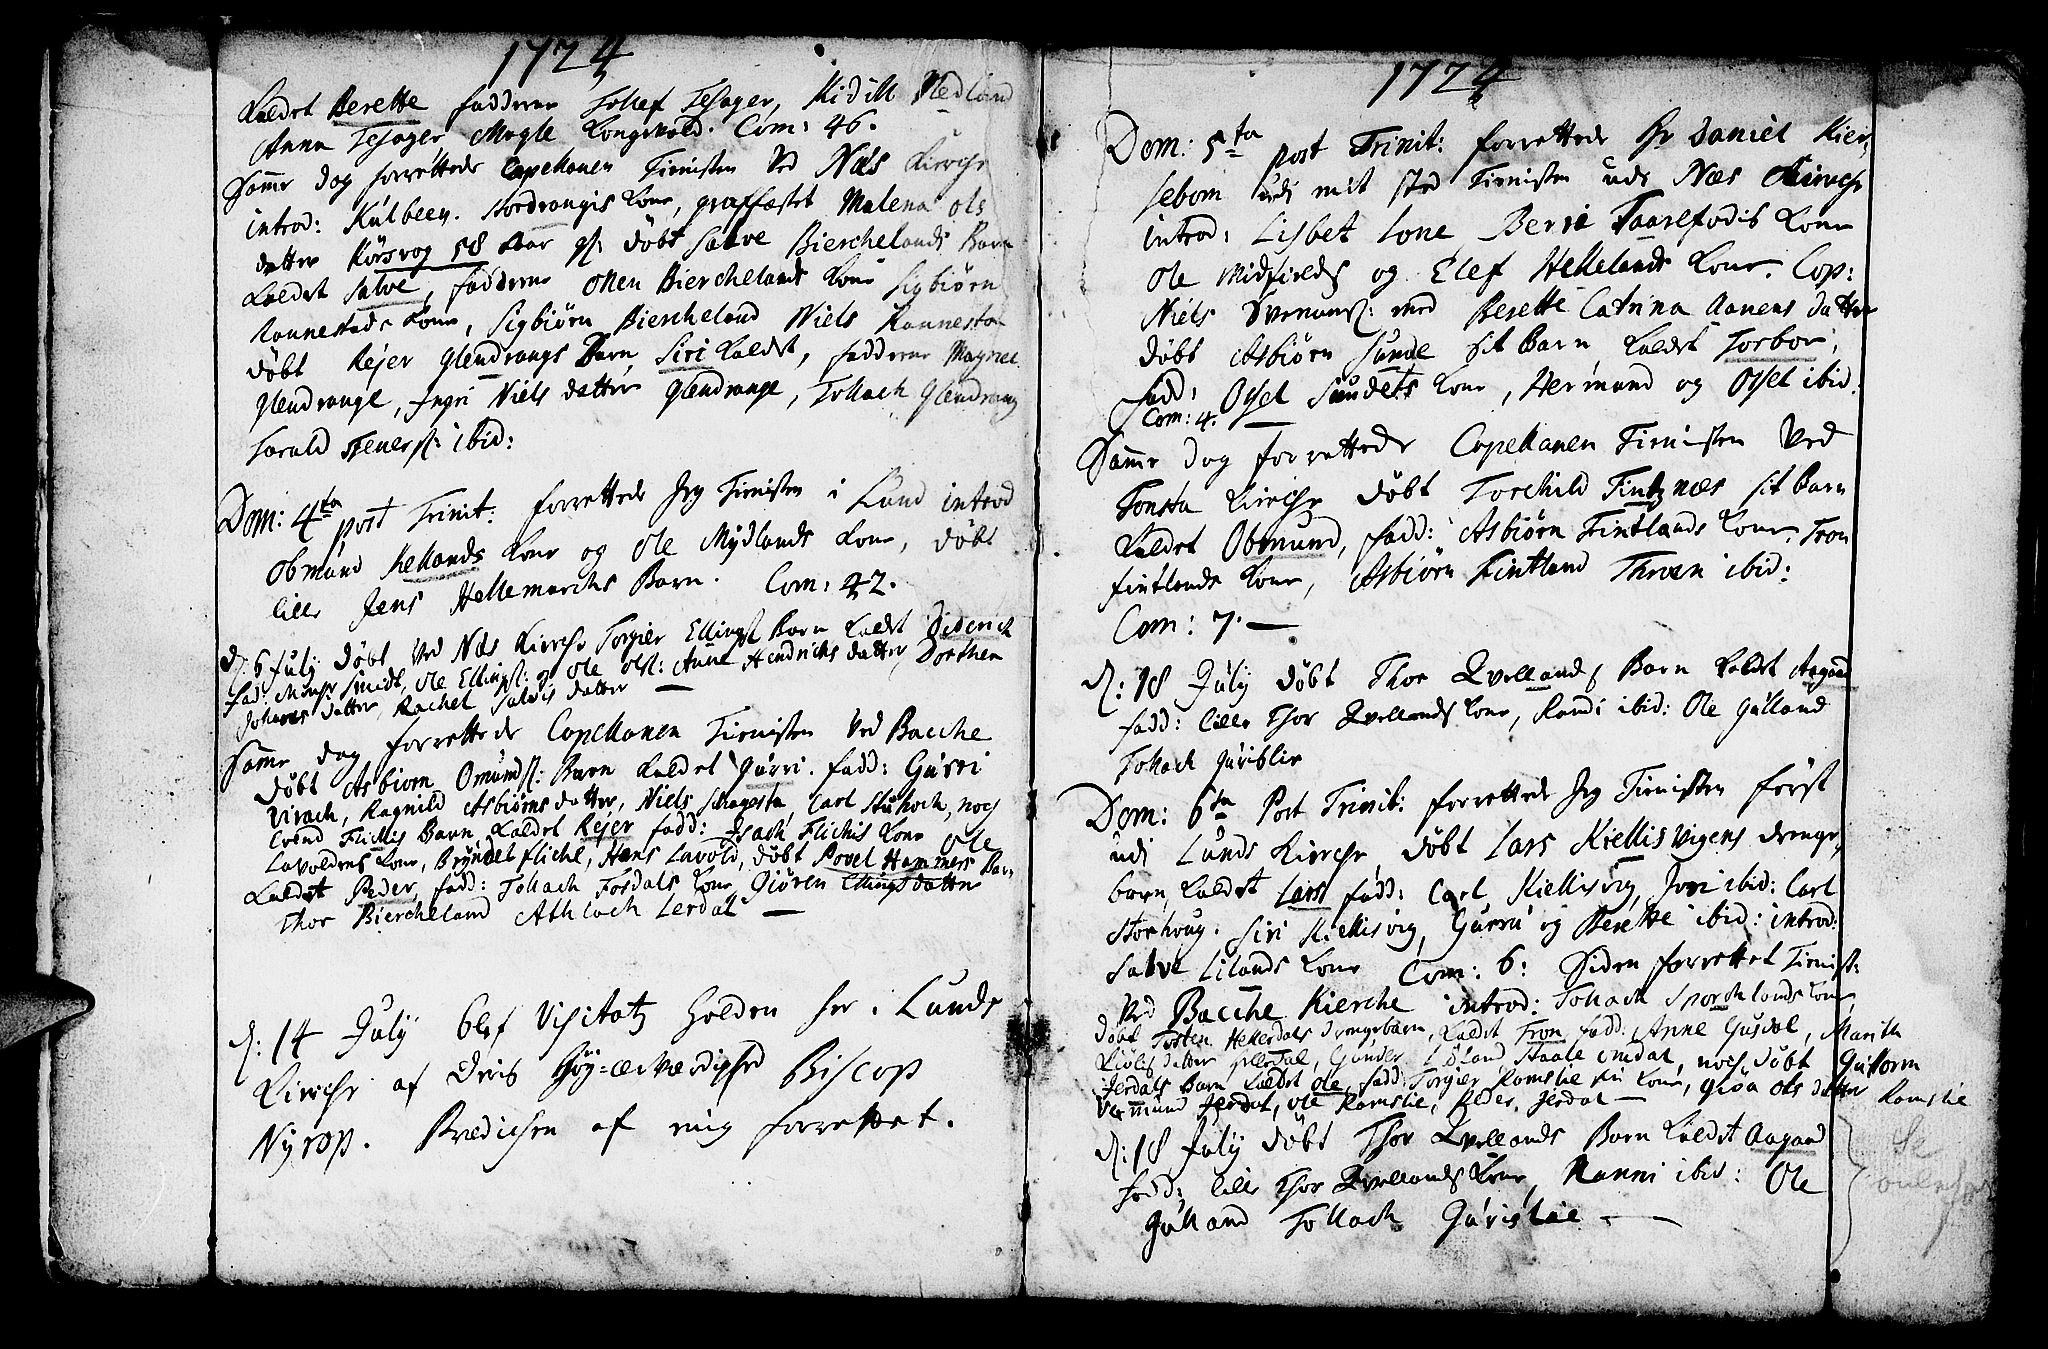 1724
Kaldet Berette fadderne Tollef Tesager, Kidill Medland
Anna Tesager, Magle Longevold. Com: 46.
Samme dag forrettede Capellanen Tienisten Ved Næs Kirche
introd: Kulbeen Nordrangis Kone, graffæstet Malena ols
datter Rørvog 58 Aar gl: døbt Salve Bierchelands Barn
Kaldet Salve, fadderne Olen Bierchelands Kone Sigbiørn
Rannestads Kone, Sigbiörn Biercheland Niels Rannestad
døbt Rejer Glendrangs Barn Siri Kaldet, fadderne Magrete
Glendrange, Ingri Niels datter Glendrange, Tollach Glendrang
Harald Stenerss: ibid:
Dom: 4ta post Trinit: forrettede Jeg Tienisten i Lund introd
Obmund Hellands Kone og Ole Mydlands Kone, døbt
lille Jens Hellemarchs Barn. Com: 42.
d: 6 July døbt Ved Næs Kirche Torgier Ellings: Barn Kaldet Diderich
fad: Monsr Smidt, Ole Ellings: og Ole Ols: Anne Hendrichs datter, Dorthea
Johanes datter, Rachel Salvis datter
Samme dag forrettede Capellanen Tienisten Ved Bacche
døbt Asbiorn Omunds: Barn Kaldet Gurri. fadd: Gurri
Virach, Ragnild Asbiørns datter, Niels Schagesta Carl Stuhoch, noch
Trend Flichis Barn Kaldet Rejer fadd: Isach Flichis Kone Ole
Lavoldens Kone, Bryndel Fliche, Hans Lavold, døbt Povel Hammers Barn
Kaldet Peder, fadd: Tollach Fosdals Kone Giören Ellings datter
Thor Biercheland Athlach Lerdal —
d: 14 July blef Visitatz holden her i Lunds
Kirche af Deris Høy-ærværdighed Biscop
Nyrop. Prædichen af mig forrettet.
1724
Dom: 5ta post Trinit: forrettede Hr Daniel Kier,
sebom udi mit sted Tienisten udi Næs Kirche
introd: Lisbet Tone, Berre Taarefodis Kone
Ole Midfields og Elef Hellelands Kone. Cop:
Niels Svenens: med Berette Catrina Aanens datter
døbt Asbiörn Sunde sit Barn Kaldet Torbor,
fadd: Ossel Sundets Kone, Hermund og Ossel ibid:
Com: 4. —
Samme dag forrettede Capellanen Tienisten Ved
Tonsta Kirche døbt Torchild Fintznæs sit Barn
Kaldet Obmund, fadd: Asbiörn Fintlands Kone, Tron
Fintlands Kone, Asbiörn Fintland Thron ibid:
Com: 7. —
d: 18 July døbt Thor Qvellands Barn Kaldet Aagaad
fadd: lille Thor Qvellands Kone, Randi ibid: Ole Gulland
Tollach Guriblie
Dom: 6ta Post Trinit: forrettede Jeg Tienisten först
udi Lunds Kirche døbt Lars Kiellisvigens drenge,
barn Kaldet Lars fadd: Carl Kiellisvig, Jori ibid: Carl
Storhoug. Siri Kiellisvig, Gurri og Berette ibid: introd:
Salve Lilands Kone Com: 6: Siden forrettet Tienist:
Ved Bacche Kierche introd: Tollach Sporchlands Kone
døbt Torsten Hellerdals drengebarn, Kaldet Tron fadd: Anne Gusdal, Marith
datter Gunder Staale Omdal, noch døbt Guttorm
Jerdals Barn Kaldet Ole, fadd: Torgier Romslie sin Kone, Gioa Ols datter Romslie
Vermund Jerdal, Ole Romslie, Peder Jerdal —
d: 18 July døbt Thor Qvellands Barn Kaldet Aagaad
fadd: lille Thor Qvellands Kone, Ranni ibid: Ole
Gulland Tollach Gurislie —
Se